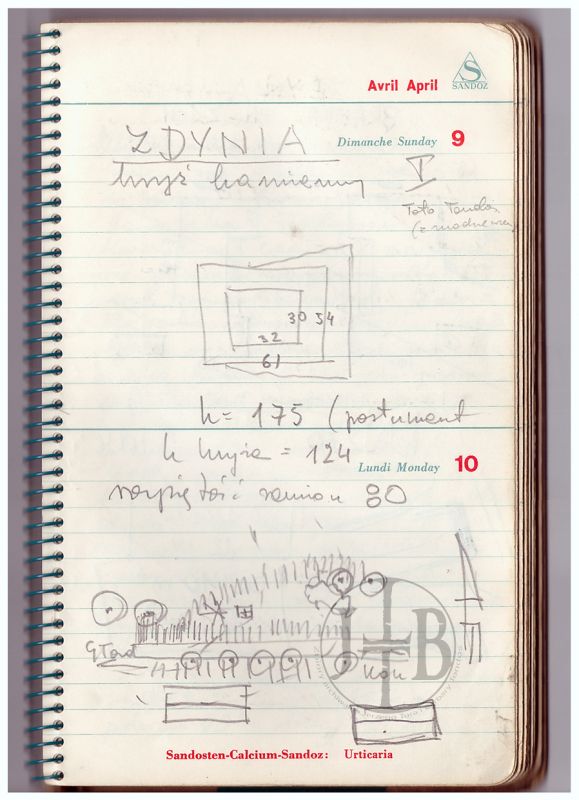 Avril April
S
SANDOZ
ZDYNIA
Dimanche Sunday 9
krzyż kamienny V
Foto Tondos
30 54
32
61
h = 175 (postument
h krzyża = 124
Lundi Monday 10
rozpiętość ramion 80
Kon
Sandosten-Calcium-Sandoz: Urticaria